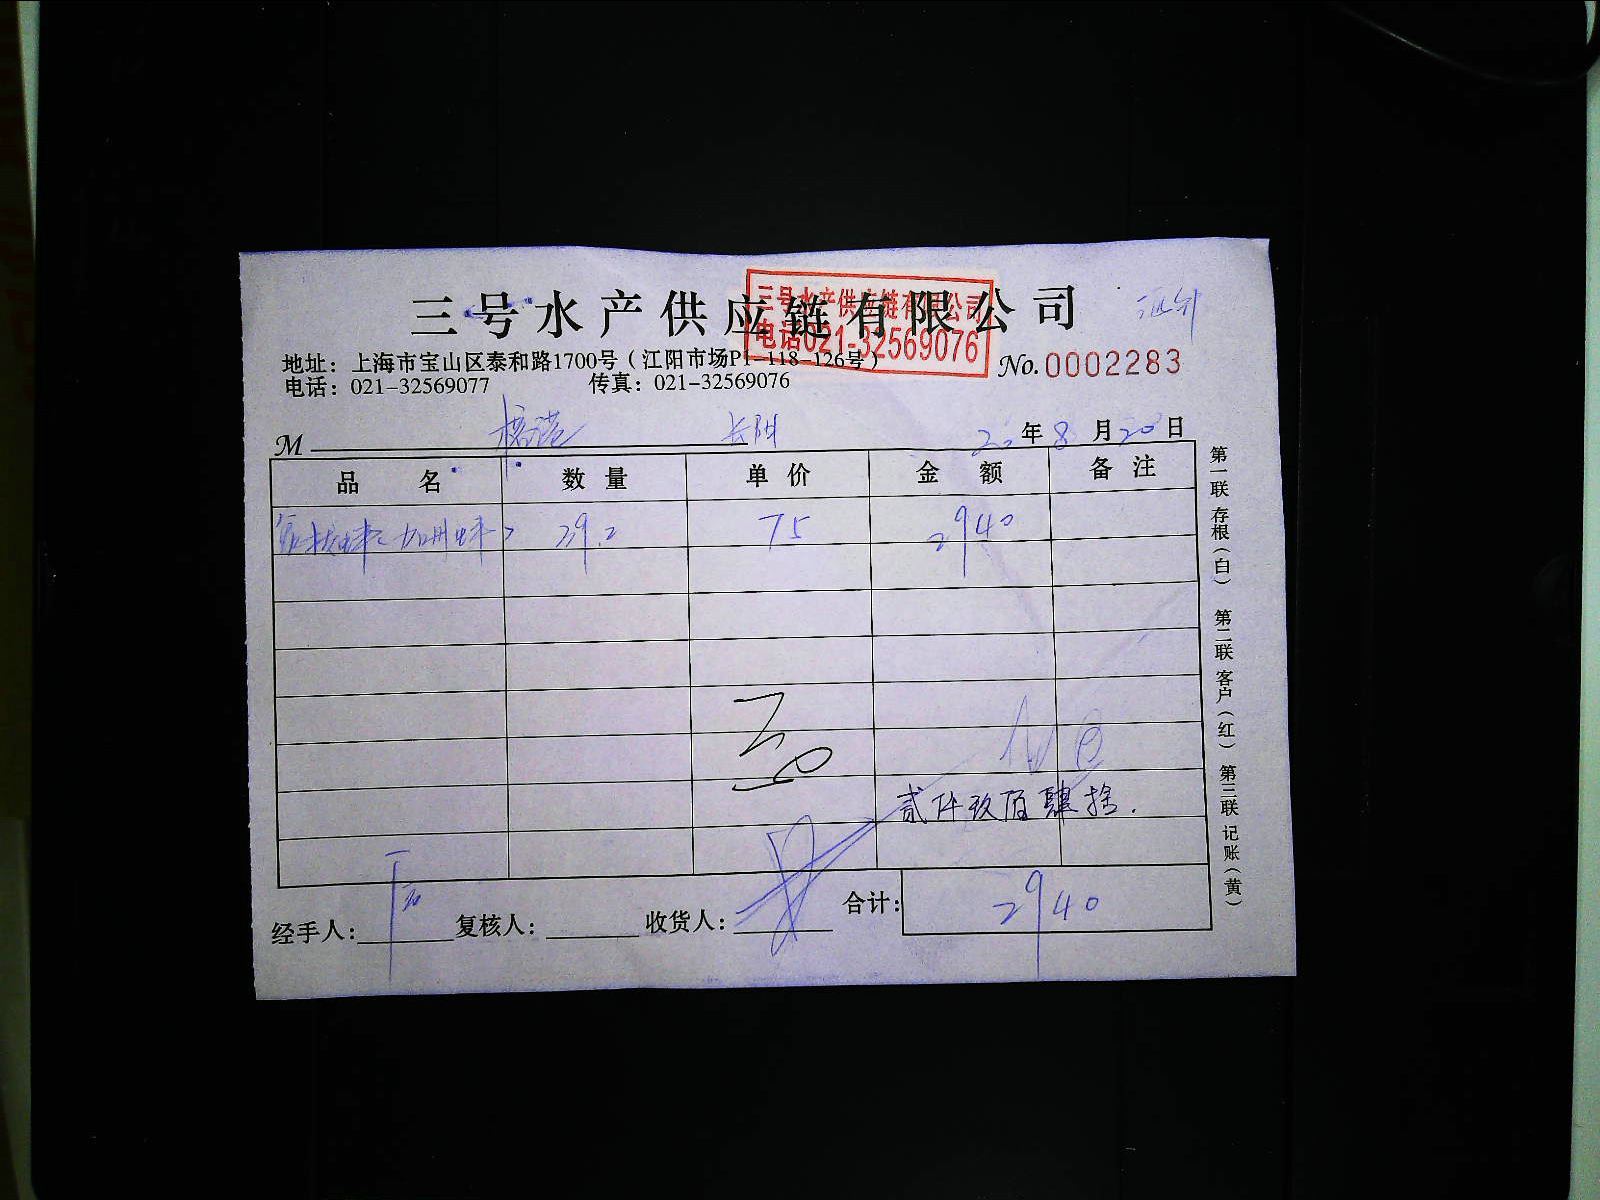 三号水产供应链有限公司
三号水产供应链有限公司
电话021-32569076
地址：上海市宝山区泰和路1700号（江阳市场P1-118-126号）
No.0002283
电话：021-32569077 传真：021-32569076
M 长阳 20年8月20日
品名 数量 单价 金额 备注
39.2 75 2940
贰仟玖佰肆拾.
经手人： 复核人： 收货人： 合计： 2940
第一联 存根（白） 第二联 客户（红） 第三联 记账（黄）